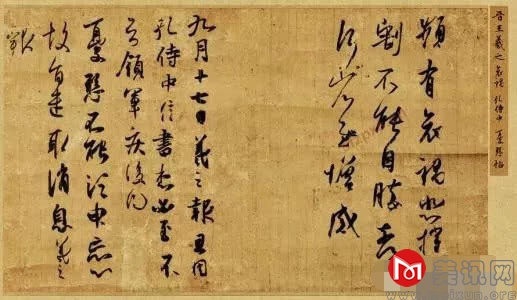 晉王羲之哀禍 孔侍中 憂懸帖
頻有哀禍悲摧切
割不能自勝奈何
奈何省慰增感
九月十七日羲之報且因
孔侍中信書想必至不
知領軍疾後問
憂懸不能須臾忘心
故旨遣取消息羲之
報
美讯网